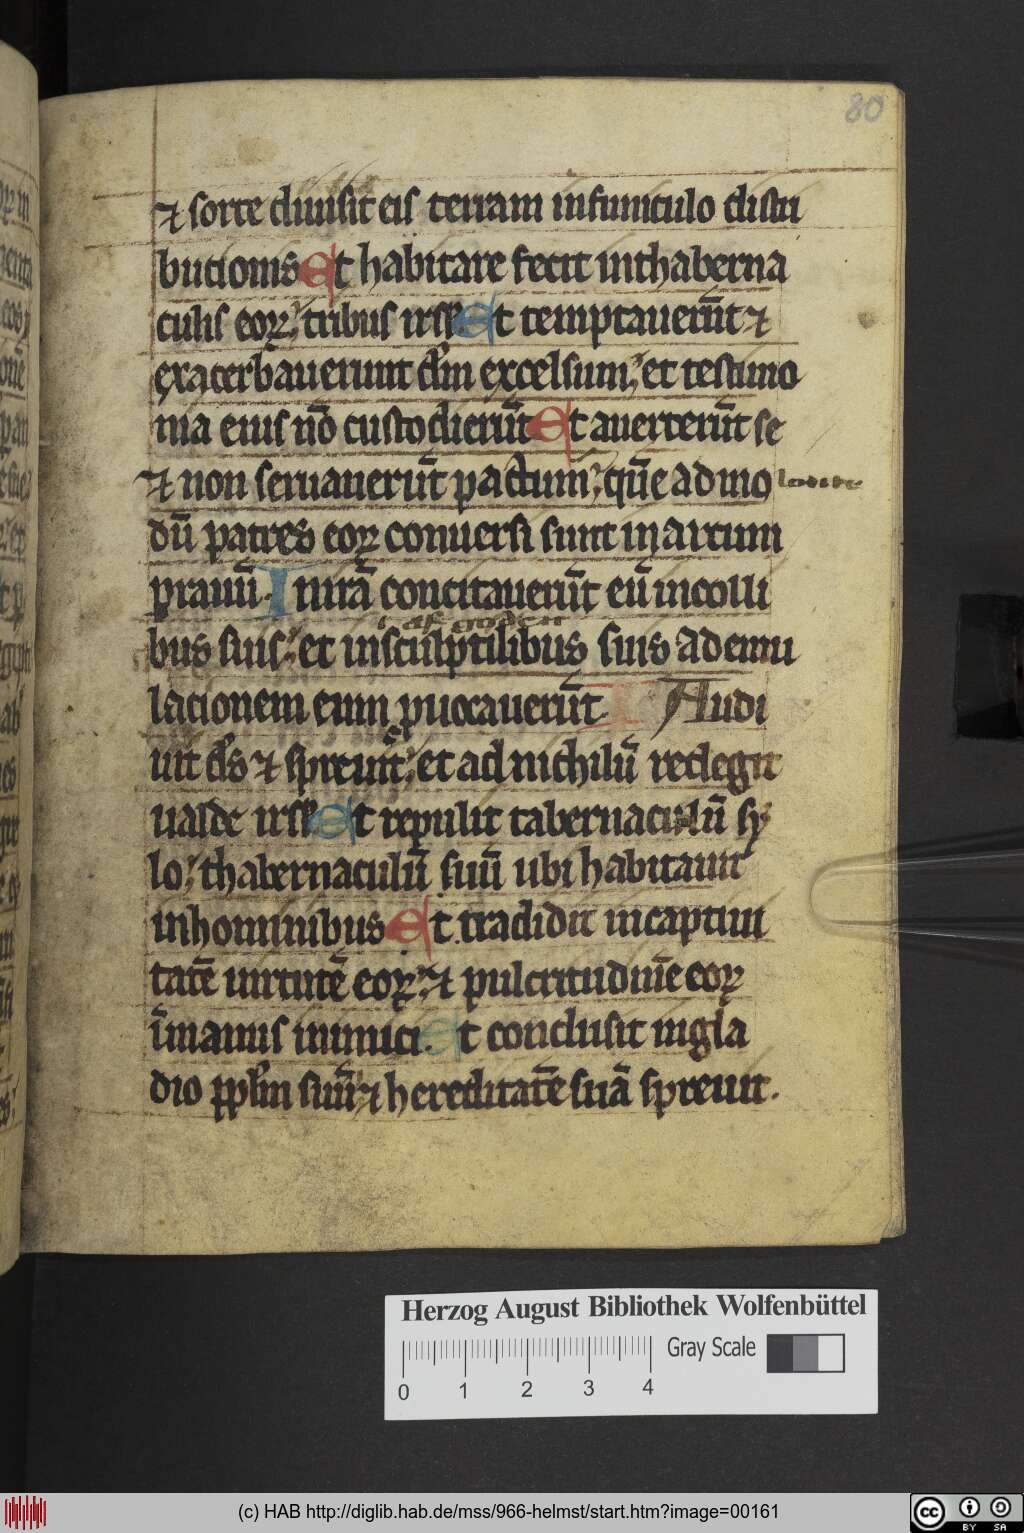 80
⁊ sorte diuisit eis terram in funiculo distri
bucionis Et habitare fecit in thaberna
culis eoꝝ, tribus irsł Et temptauerūt ⁊
exacerbauerunt dm̄ excelsum, et testimo
nia eius nō custodierūt Et auerterūt se
⁊ non seruauerūt pactum, quē ad mo
dū patres eoꝝ conuersi sunt in arcum
prauū. In irā concitauerūt eū in colli
bus suis, et in sculptilibus suis ad emu
lacionem eum ꝓuocauerūt Audi
uit ds̄ ⁊ spreuit, et ad nichilū redegit
ualde irsł Et repulit tabernaculū sy
lo, thabernaculū suū ubi habitauit
in hominibus Et tradidit in captiui
tatē uirtutē eoꝝ, ⁊ pulcritudinē eoꝝ
ī manus inimici. Et conclusit in gla
dio pp̄lm suū ⁊ hereditatē suā spreuit.
Herzog August Bibliothek Wolfenbüttel
Gray Scale
0 1 2 3 4
(c) HAB http://diglib.hab.de/mss/966-helmst/start.htm?image=00161
cc BY SA